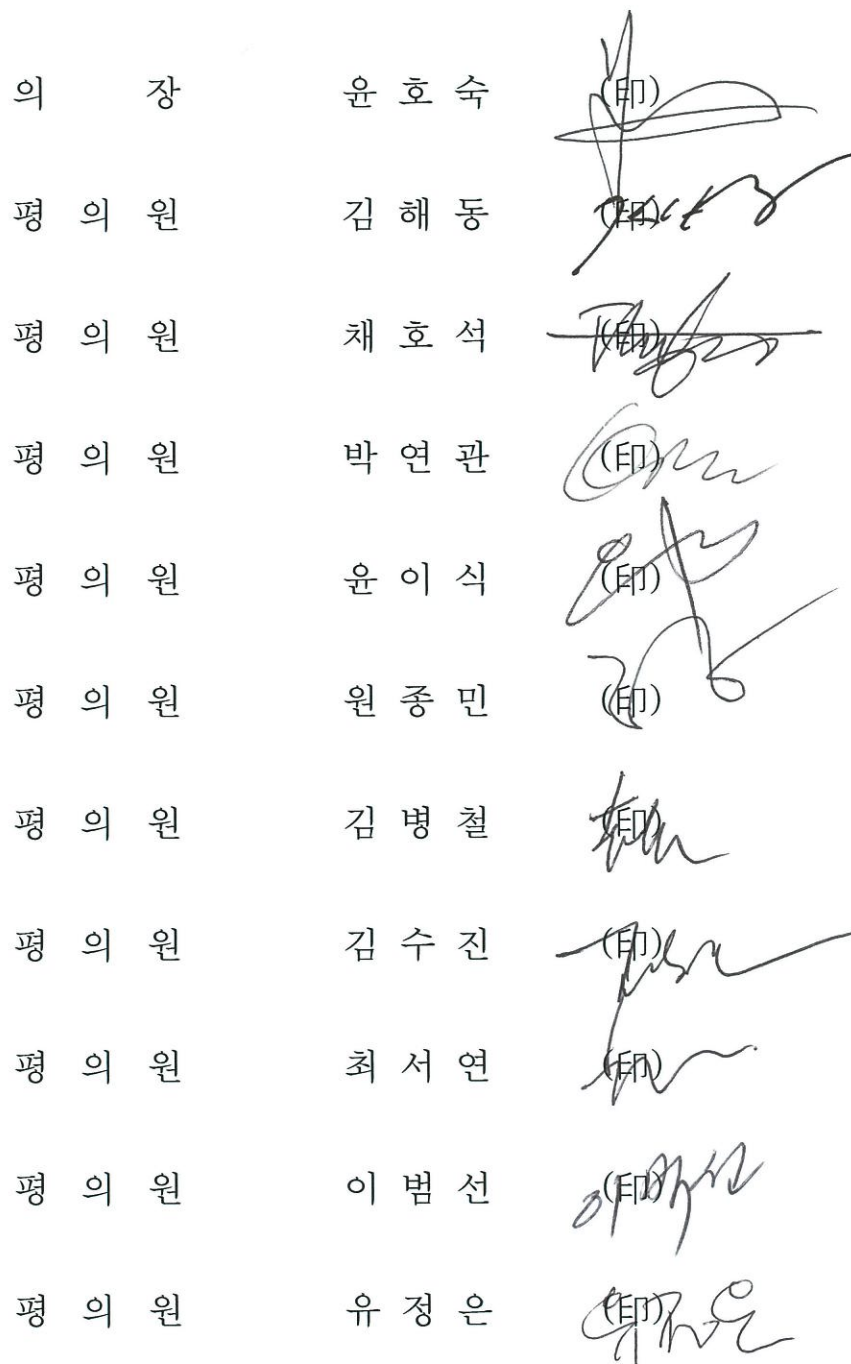 의 장 윤 호 숙 (印)
평 의 원 김 해 동 (印)
평 의 원 채 호 석 (印)
평 의 원 박 연 관 (印)
평 의 원 윤 이 식 (印)
평 의 원 원 종 민 (印)
평 의 원 김 병 철 (印)
평 의 원 김 수 진 (印)
평 의 원 최 서 연 (印)
평 의 원 이 범 선 (印)
평 의 원 유 정 은 (印)